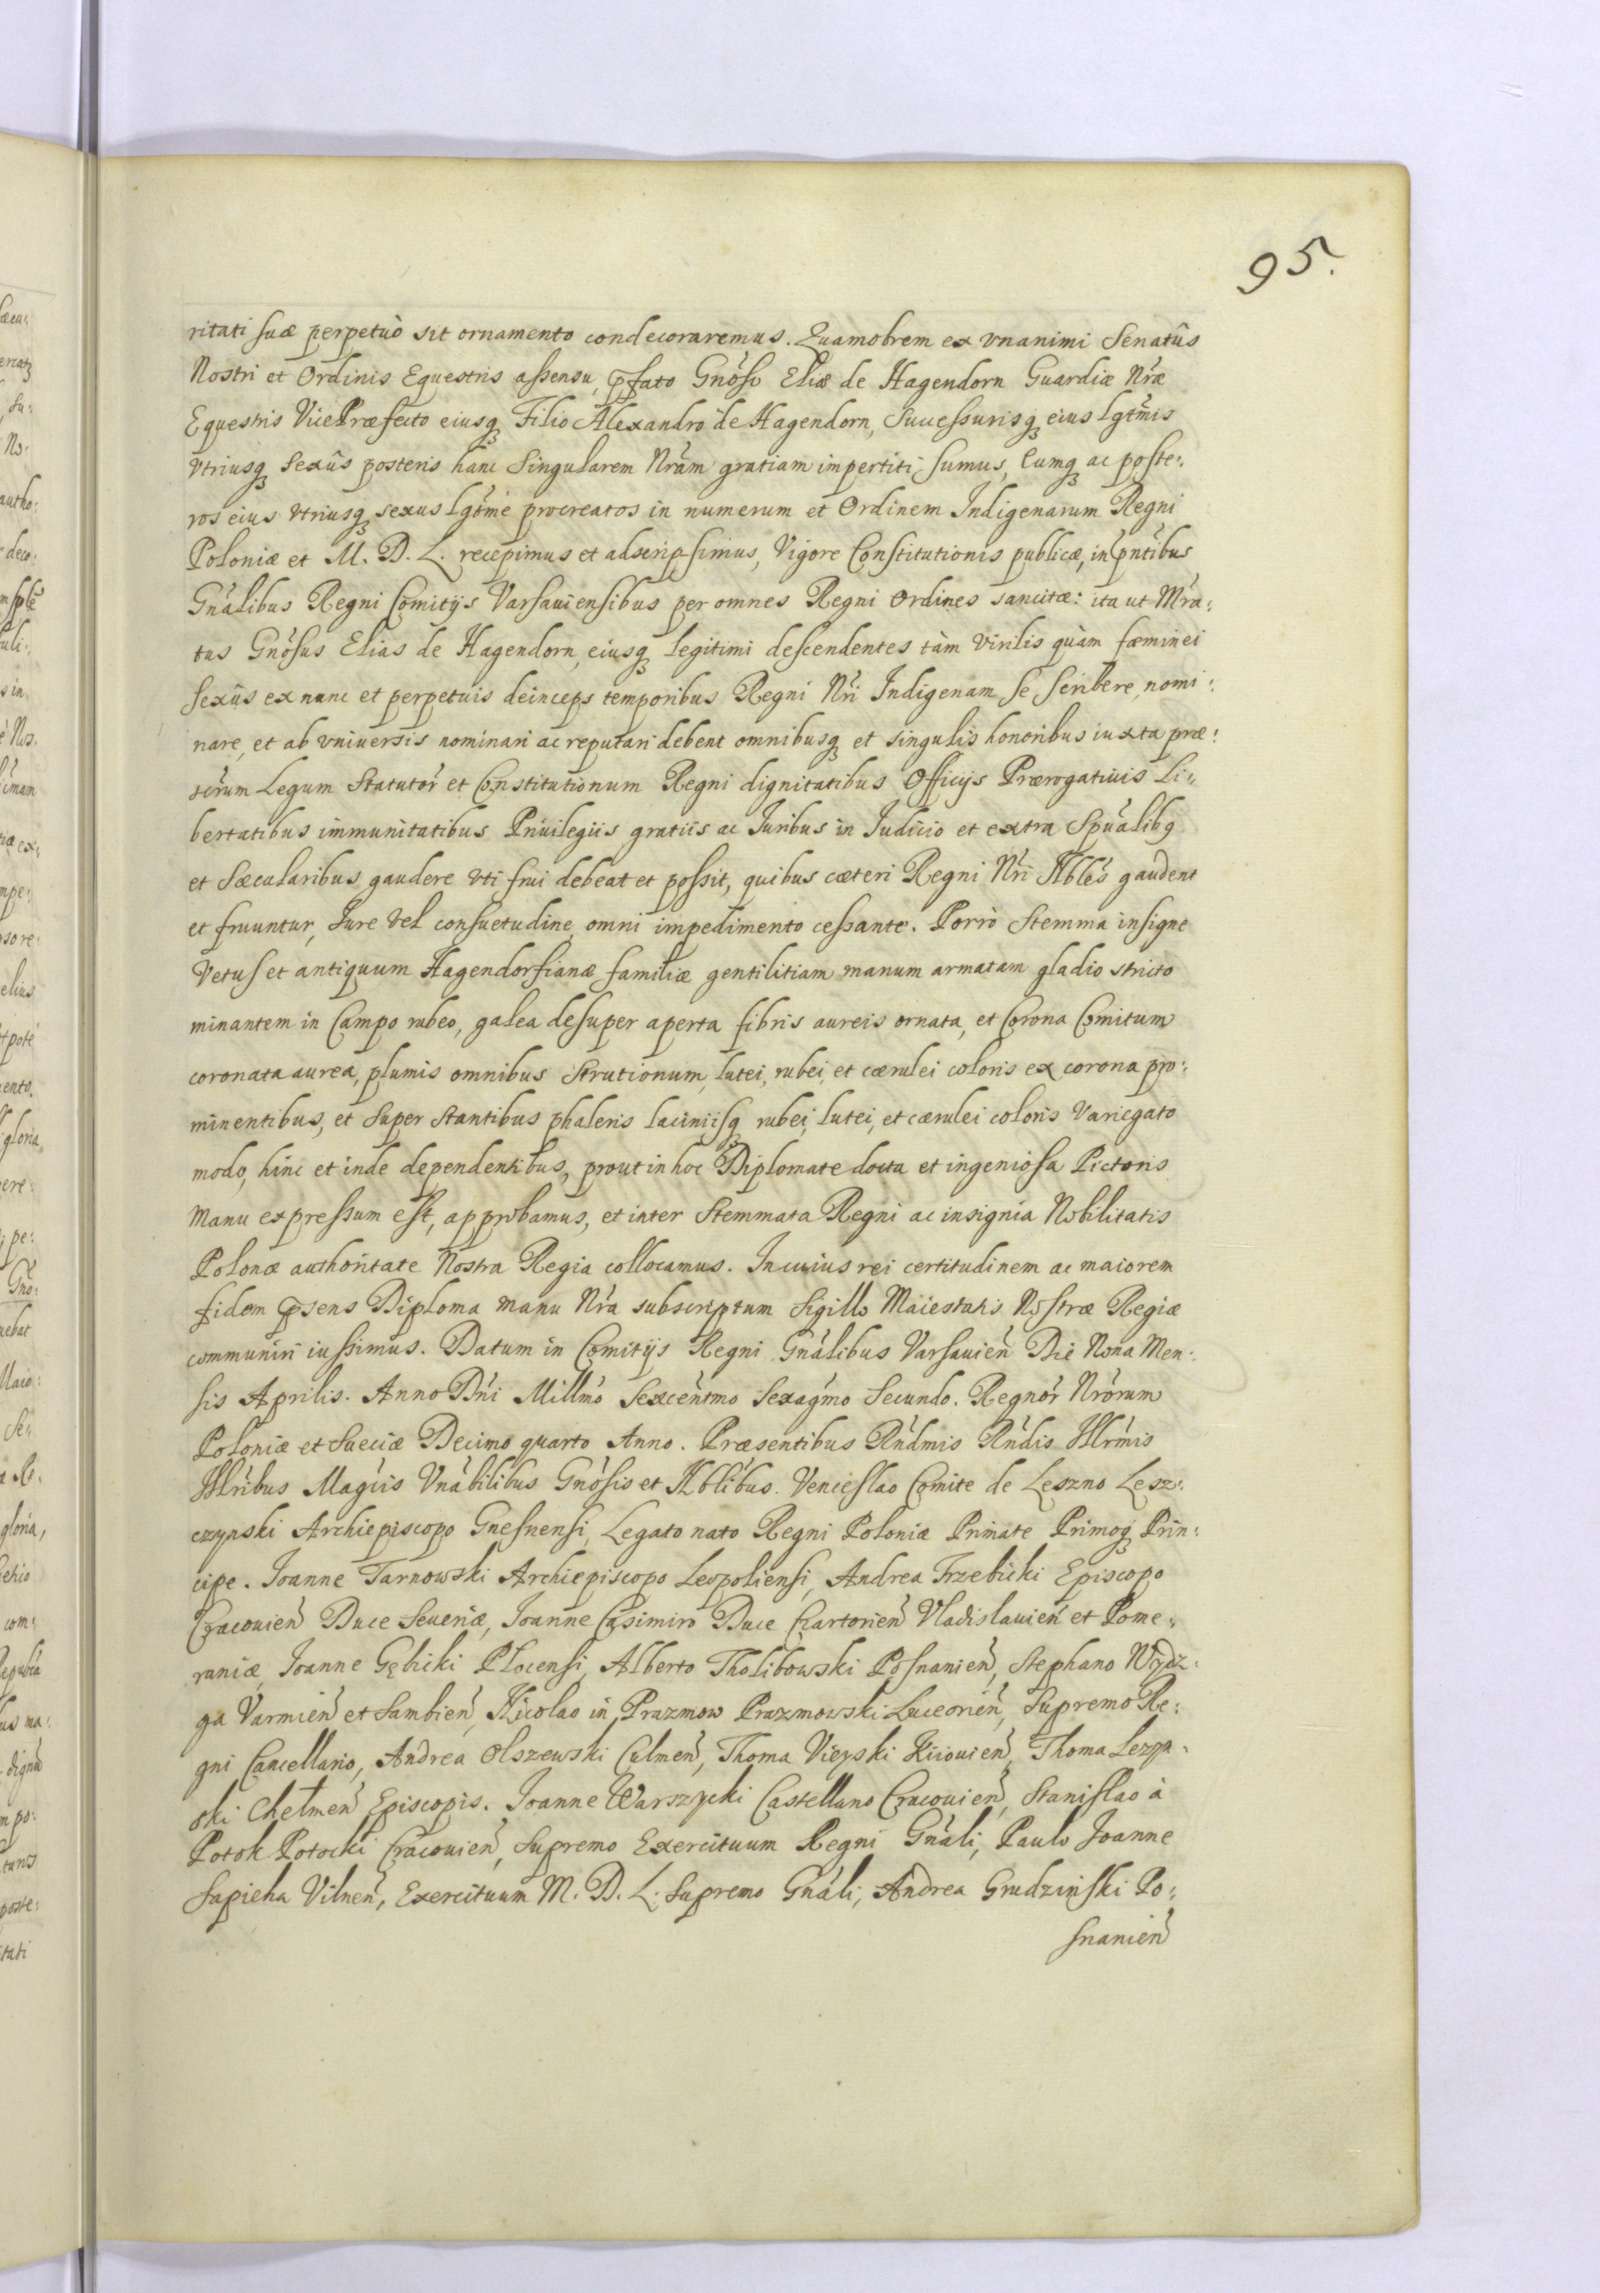 95.
ritati suæ perpetuò sit ornamento condecoraremus. Quamobrem ex vnanimi Senatûs
Nostri et Ordinis Equestris assensu, pfato Gnoso Eliæ de Hagendorn Guardiæ Nræ
Equestris VicePræfecto eiusq Filio Alexandro de Hagendorn, Successurisq eius lgtmis
vtriusq Sexûs posteris hanc Singularem Nram gratiam impertiti sumus, Eumq ac poste:
ros eius vtriusq sexus lgtme procreatos in numerum et Ordinem Indigenarum Regni
Poloniæ et M. D. L. recepimus et adscripsimus, Vigore Constitutionis publicæ, in pntibus
Gnalibus Regni Comitijs Varsauiensibus per omnes Regni Ordines sancitæ: ita ut Mra:
tus Gnosus Elias de Hagendorn, eiusq legitimi descendentes tàm virilis quàm fæminei
Sexûs ex nunc et perpetuis deinceps temporibus Regni Nri Indigenam se scribere, nomi:
nare, et ab vniuersis nominari ac reputari debent omnibusq et singulis honoribus iuxta præ:
scrum Legum Statutor et Constitutionum Regni dignitatibus Officijs Prærogatiuis Li:
bertatibus immunitatibus Priuilegiis gratiis ac Iuribus in Iudicio et extra Spualibq
et Sæcularibus gaudere vti frui debeat et possit, quibus cæteri Regni Nri Nbles gaudent
et fruuntur, Iure vel consuetudine, omni impedimento cessante. Porrò Stemma insigne
Vetus et antiquum Hagendorfianæ familiæ gentilitiam manum armatam gladio stricto
minantem in Campo rubeo, galea desuper aperta fibris aureis ornata, et Corona Comitum
coronata aurea, plumis omnibus Strutionum, lutei, rubei, et cærulei coloris ex corona pro:
minentibus, et super stantibus phaleris laciniisq rubei, lutei, et cærulei coloris variegato
modo, hinc et inde dependentibus, prout in hoc Diplomate docta et ingeniosa Pictoris
manu expressum est, approbamus, et inter Stemmata Regni ac insignia Nobilitatis
Polonæ authoritate Nostra Regia collocamus. In cuius rei certitudinem ac maiorem
fidem psens Diploma manu Nra subscriptum Sigillo Maiestatis Nostræ Regiæ
communiri iussimus. Datum in Comitijs Regni Gnalibus Varsauien Die Nona Men:
sis Aprilis. Anno Dni Millmo Sexcentmo Sexagmo Secundo. Regnor Nrorum
Poloniæ et Sueciæ Decimo quarto Anno. Præsentibus Rndmis Rndis Illrmis
Illribus Magcis Vnabilibus Gnosis et Nblibus. Venceslao Comite de Leszno Lesz:
czynski Archiepiscopo Gnesnensi, Legato nato Regni Poloniæ Primate Primoq Prin:
cipe. Ioanne Tarnowski Archiepiscopo Leopoliensi, Andrea Trzebicki Episcopo
Cracouien Duce Seueriæ, Ioanne Casimiro Duce Czartorien Vladislauien et Pome:
raniæ, Ioanne Gębicki Plocensi, Alberto Tholibowski Posnanien, Stephano Wydz:
ga Varmien et Sambien, Nicolao in Prazmow Prazmowski Luceorien, Supremo Re:
gni Cancellario, Andrea Olszewski Culmen, Thoma Vieyski Kiiouien, Thoma Lezyn:
ski Chelmen Episcopis. Ioanne Warszycki Castellano Cracouien, Stanislao à
Potok Potocki Cracouien, Supremo Exercituum Regni Gnali, Paulo Ioanne
Sapieha Vilnen, Exercituum M. D. L. Supremo Gnali, Andrea Grudzinski Po:
snanien